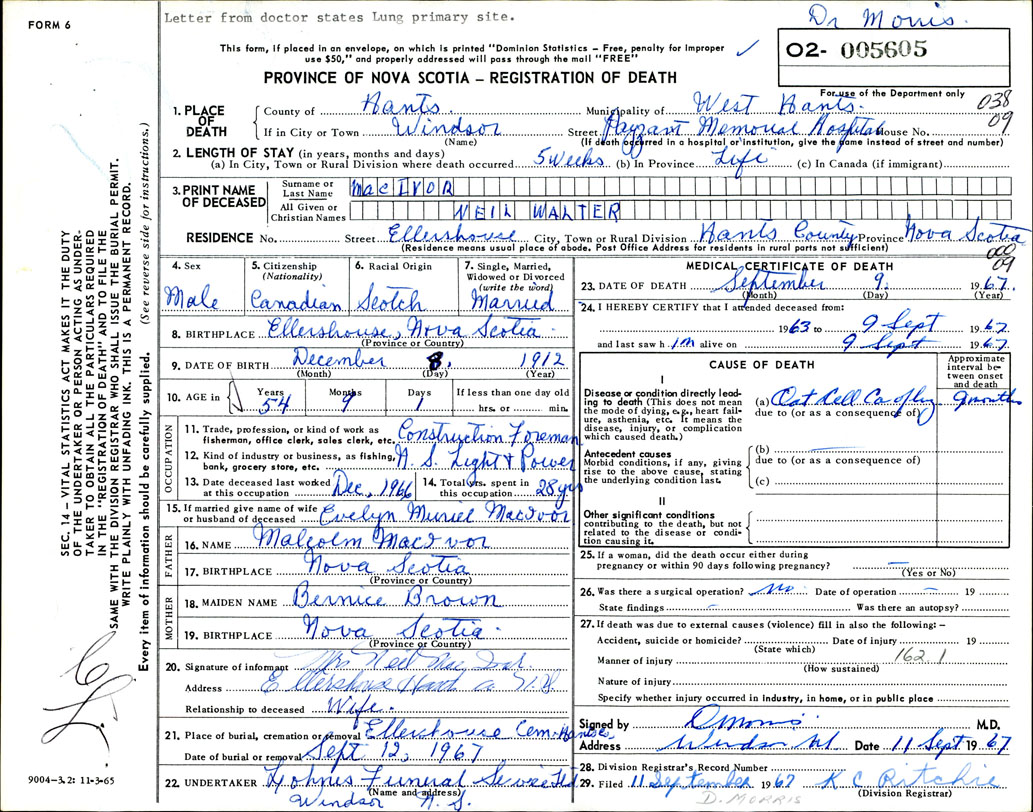 FORM 6
Letter from doctor states Lung primary site.
Dr Morris.
This form, if placed in an envelope, on which is printed "Dominion Statistics – Free, penalty for improper
use $50," and properly addressed will pass through the mail "FREE"
O2- 005605
PROVINCE OF NOVA SCOTIA – REGISTRATION OF DEATH
For use of the Department only
038
09
1. PLACE OF DEATH
County of Hants. Municipality of West Hants.
If in City or Town Windsor Street Payzant Memorial Hospital House No.
(Name) (If death occurred in a hospital or institution, give the name instead of street and number)
2. LENGTH OF STAY (in years, months and days)
(a) In City, Town or Rural Division where death occurred 5 Weeks (b) In Province Life (c) In Canada (if immigrant)
3. PRINT NAME OF DECEASED
Surname or Last Name MacIVOR
All Given or Christian Names NEIL WALTER
RESIDENCE No. Street Ellershouse City, Town or Rural Division Hants County Province Nova Scotia
(Residence means usual place of abode. Post Office Address for residents in rural parts not sufficient)
000
09
4. Sex Male
5. Citizenship (Nationality) Canadian
6. Racial Origin Scotch
7. Single, Married, Widowed or Divorced (write the word) Married
8. BIRTHPLACE Ellershouse, Nova Scotia
(Province or Country)
9. DATE OF BIRTH December 8, 1912
(Month) (Day) (Year)
10. AGE in Years 54 Months 9 Days 1 If less than one day old hrs. or min.
OCCUPATION
11. Trade, profession, or kind of work as fisherman, office clerk, sales clerk, etc. Construction Foreman
12. Kind of industry or business, as fishing, bank, grocery store, etc. N. S. Light & Power
13. Date deceased last worked at this occupation Dec, 1966
14. Total yrs. spent in this occupation 28 yrs
15. If married give name of wife or husband of deceased Evelyn Muriel MacIvor
FATHER
16. NAME Malcolm MacIvor
17. BIRTHPLACE Nova Scotia
(Province or Country)
MOTHER
18. MAIDEN NAME Bernice Brown
19. BIRTHPLACE Nova Scotia
(Province or Country)
20. Signature of informant Mrs Neil MacIvor
Address Ellershouse Hants Co N.S.
Relationship to deceased Wife.
21. Place of burial, cremation or removal Ellershouse Cem. Hants Co
Date of burial or removal Sept 12, 1967
22. UNDERTAKER Johns Funeral Service Ltd
(Name and address)
Windsor N.S.
MEDICAL CERTIFICATE OF DEATH
23. DATE OF DEATH September 9. 1967.
(Month) (Day) (Year)
24. I HEREBY CERTIFY that I attended deceased from:
1963 to 9 Sept 1967
and last saw him alive on 9 Sept 1967.
CAUSE OF DEATH
Approximate interval between onset and death
I
Disease or condition directly leading to death (This does not mean the mode of dying, e.g., heart failure, asthenia, etc. It means the disease, injury, or complication which caused death.)
(a) Oat Cell Ca of lung 9 months
due to (or as a consequence of)
Antecedent causes
Morbid conditions, if any, giving rise to the above cause, stating the underlying condition last.
(b)
due to (or as a consequence of)
(c)
II
Other significant conditions
contributing to the death, but not related to the disease or condition causing it.
25. If a woman, did the death occur either during pregnancy or within 90 days following pregnancy? –
(Yes or No)
26. Was there a surgical operation? No Date of operation – 19
State findings – Was there an autopsy?
27. If death was due to external causes (violence) fill in also the following: –
Accident, suicide or homicide? Date of injury 19
(State which)
Manner of injury 162.1
(How sustained)
Nature of injury
Specify whether injury occurred in industry, in home, or in public place
Signed by D Morris M.D.
Address Windsor NS Date 11 Sept 1967.
28. Division Registrar's Record Number
29. Filed 11 September 1967 K C Ritchie
(Division Registrar)
D. MORRIS
SEC. 14 – VITAL STATISTICS ACT MAKES IT THE DUTY
OF THE UNDERTAKER OR PERSON ACTING AS UNDER-
TAKER TO OBTAIN ALL THE PARTICULARS REQUIRED
IN THE "REGISTRATION OF DEATH" AND TO FILE THE
SAME WITH THE DIVISION REGISTRAR WHO SHALL ISSUE THE BURIAL PERMIT.
WRITE PLAINLY WITH UNFADING INK. THIS IS A PERMANENT RECORD.
Every item of information should be carefully supplied. (See reverse side for instructions.)
9004–3.2: 11-3-65